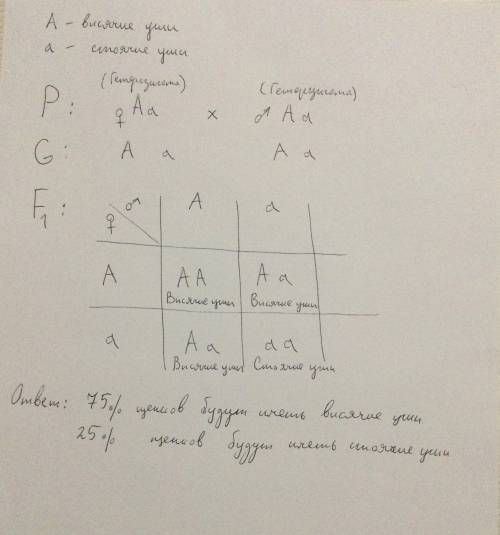 A – висячие уши
a – стоячие уши
(Гетерозигота) (Гетерозигота)
P: ♀ Aa x ♂ Aa
G: A a A a
F1: ♂ A a
♀
A AA Aa
Висячие уши Висячие уши
a Aa aa
Висячие уши Стоячие уши
Ответ: 75% щенков будут иметь висячие уши
25% щенков будут иметь стоячие уши